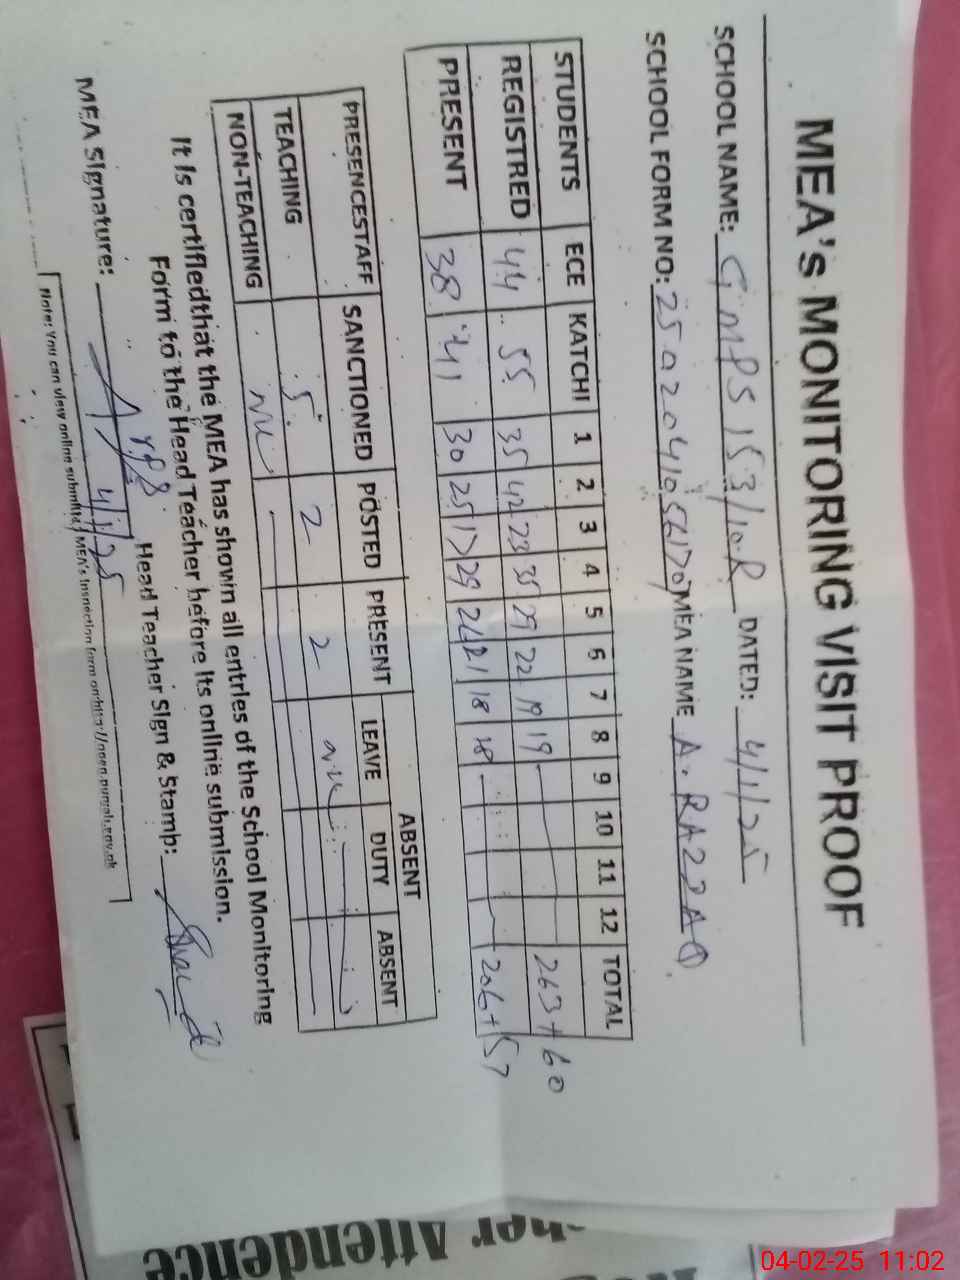 MEA's MONITORING VISIT PROOF
SCHOOL NAME: GMPS 153/10.R DATED: 4/1/25
SCHOOL FORM NO: MEA NAME A. RAZZAQ
STUDENTS ECE KATCHI 1 2 3 4 5 6 7 8 9 10 11 12 TOTAL
REGISTRED 44 55 35 42 23 35 29 22 19 19 263+60
PRESENT 38 41 30 25 17 29 26 21 18 18 206+57
PRESENCESTAFF SANCTIONED POSTED PRESENT ABSENT
LEAVE DUTY ABSENT
TEACHING 5 2 2 nil
NON-TEACHING nil
It is certifiedthat the MEA has shown all entries of the School Monitoring
Form to the Head Teacher before its online submission.
MEA Signature: Head Teacher Sign & Stamp:
4/1/25
Note: You can view online submitted MEA's Inspection form on
her Attendence
04-02-25 11:02